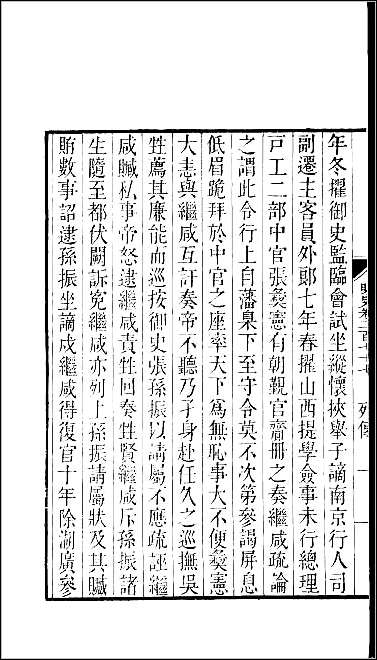 年冬擢御史監臨會試坐縱懷挾舉子謫南京行人司
副遷主客員外郎七年春擢山西提學僉事未行總理
戸工二部中官張彝憲有朝覲官齎冊之奏繼咸疏論
之謂此令行上自藩臬下至守令莫不次第參謁屏息
低眉跪拜於中官之座率天下爲無恥事大不便彝憲
大恚與繼咸互訐奏帝不聽乃孑身赴任久之巡撫吳
甡薦其廉能而巡按御史張孫振以請屬不應疏誣繼
咸贓私事帝怒逮繼咸責甡回奏甡賢繼咸斥孫振諸
生隨至都伏闕訴寃繼咸亦列上孫振請屬狀及其贓
賄數事詔逮孫振坐謫戍繼咸得復官十年除湖廣參
明史卷二百七十七 列傳